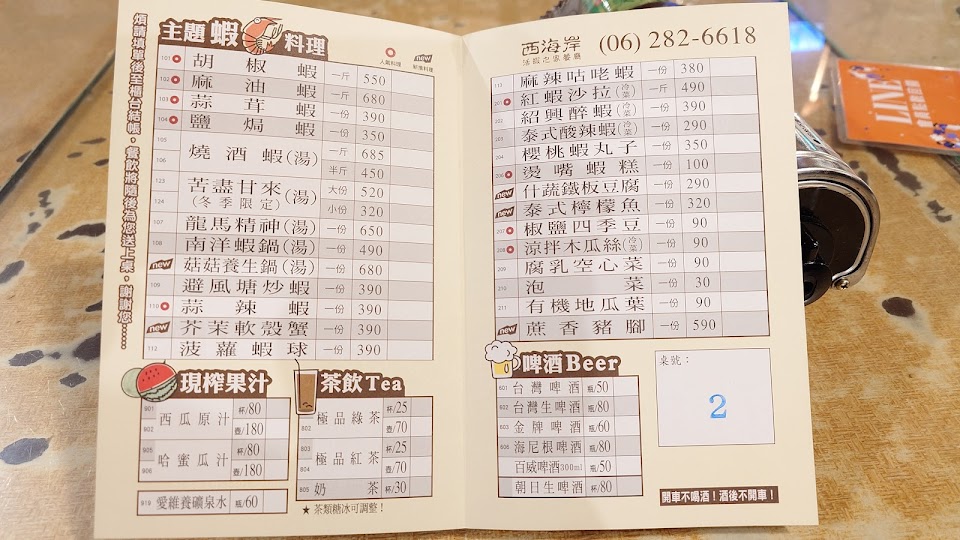 煩請填寫後至櫃台結帳，餐飲將隨後為您送上桌，謝謝您......
主題 蝦 料理
人氣料理
new 新落料理
101 胡椒蝦 一斤 550
102 麻油蝦 一斤 680
103 蒜茸蝦 一份 390
104 鹽焗蝦 一份 350
105 燒酒蝦(湯) 一斤 685
106 半斤 450
123 苦盡甘來(冬季限定)(湯) 大份 520
124 小份 320
107 龍馬精神(湯) 一份 650
108 南洋蝦鍋(湯) 一份 490
new 菇菇養生鍋(湯) 一份 680
109 避風塘炒蝦 一份 390
110 蒜辣蝦 一份 390
new 芥茉軟殼蟹 一份 390
112 菠蘿蝦球 一份 390
現榨果汁
901 西瓜原汁 杯/80
902 壺/180
905 哈蜜瓜汁 杯/80
906 壺/180
919 愛維養礦泉水 瓶/60
茶飲 Tea
801 極品綠茶 杯/25
802 壺/70
803 極品紅茶 杯/25
804 壺/70
805 奶茶 杯/30
★ 茶類糖冰可調整！
西海岸
活蝦之家餐廳
(06) 282-6618
113 麻辣咕咾蝦 一份 380
201 紅蝦沙拉(冷菜) 一斤 490
202 紹興醉蝦(冷菜) 一份 390
203 泰式酸辣蝦(冷菜) 一份 290
204 櫻桃蝦丸子 一份 350
206 燙嘴蝦糕 一份 100
new 什蔬鐵板豆腐 一份 290
new 泰式檸檬魚 一份 320
207 椒鹽四季豆 一份 90
208 涼拌木瓜絲(冷菜) 一份 90
209 腐乳空心菜 一份 90
210 泡菜 一份 30
211 有機地瓜葉 一份 90
new 蔗香豬腳 一份 590
啤酒 Beer
601 台灣啤酒 瓶/50
602 台灣生啤酒 瓶/80
603 金牌啤酒 瓶/60
606 海尼根啤酒 瓶/80
百威啤酒300ml 瓶/50
朝日生啤酒 杯/80
桌號：
2
開車不喝酒！酒後不開車！
LINE